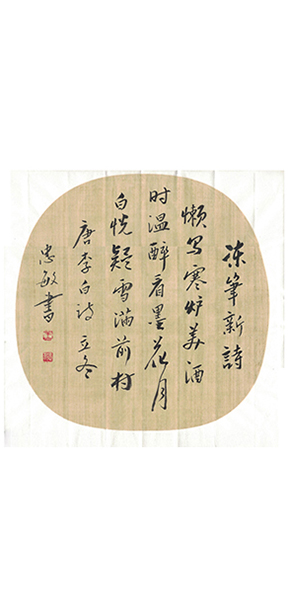 冻笔新詩
懒写寒炉美酒
时温醉看墨花月
白恍疑雪满前村
唐李白诗立冬
忠敏書